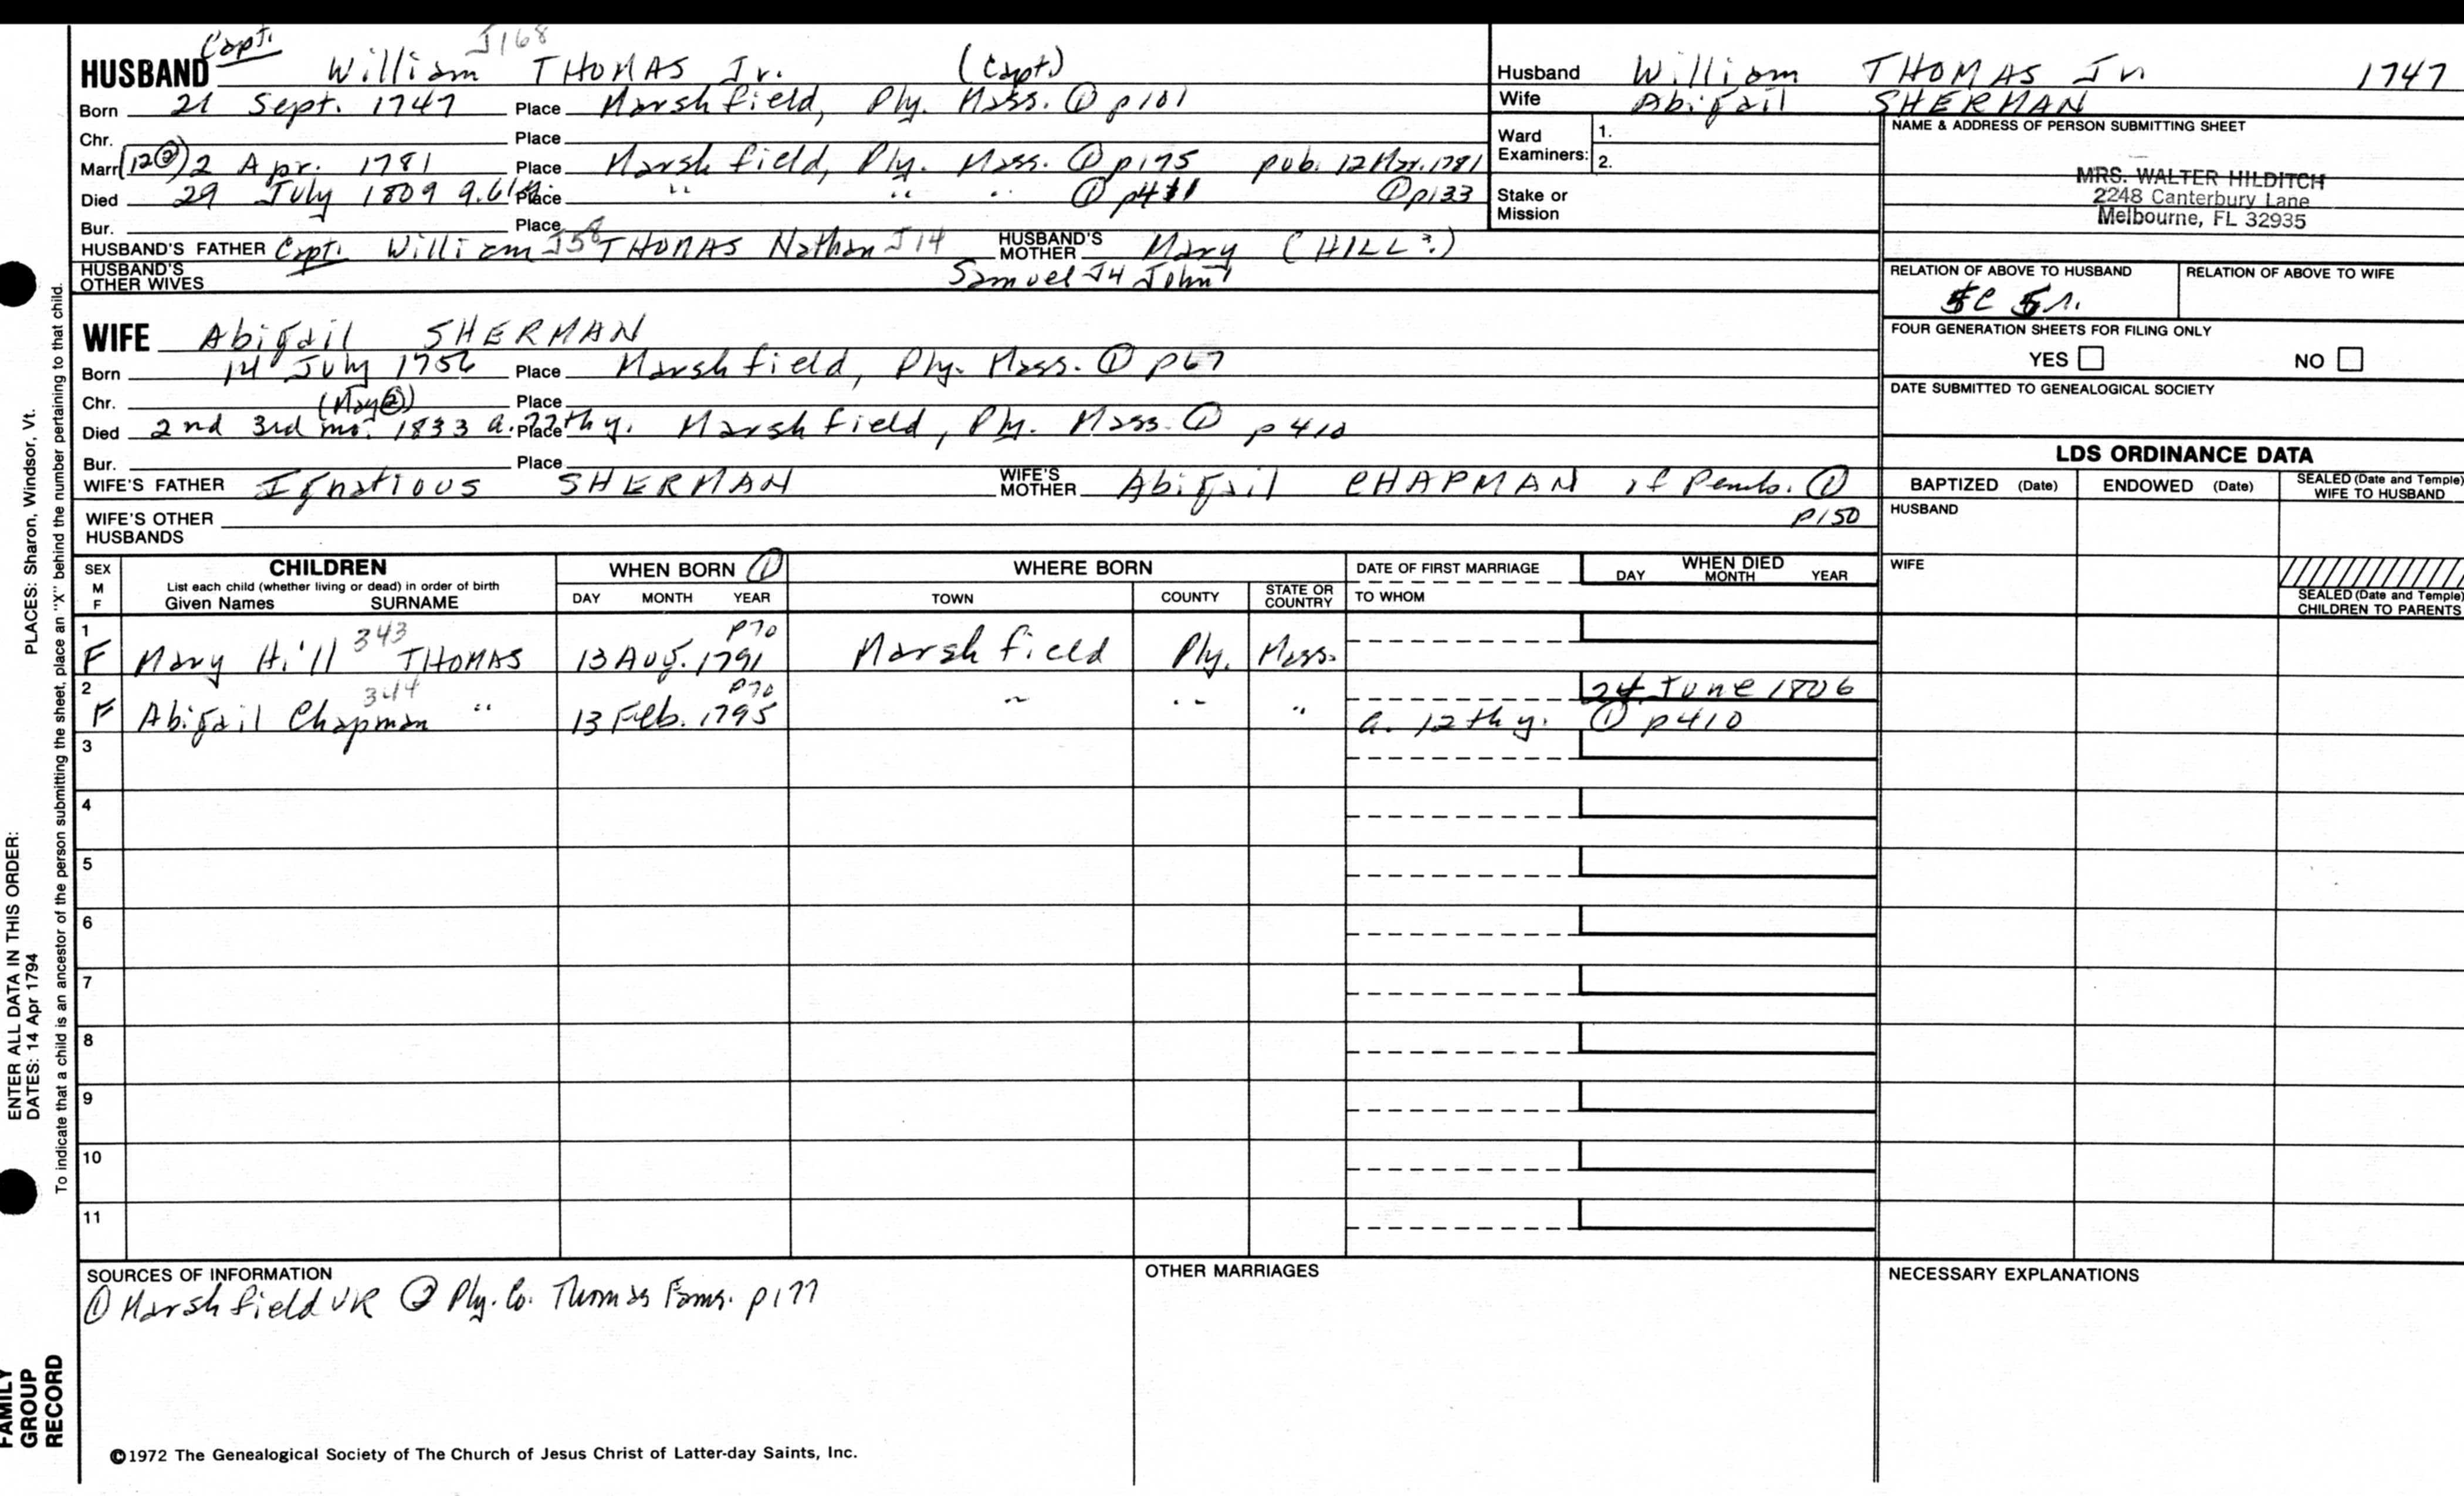 Capt. J168
HUSBAND William THOMAS Jr. (Capt)
Born 21 Sept. 1747 Place Marshfield, Ply. Mass. ① p101
Chr. Place
Marr (12②) 2 Apr. 1781 Place Marshfield, Ply. Mass. ① p175 pub. 12 Mar. 1781
Died 29 July 1809 a. 61 Place " " " ① p411 ① p133
Bur. Place
HUSBAND'S FATHER Capt. William J58 THOMAS Nathan J14 HUSBAND'S MOTHER Mary (HILL?)
HUSBAND'S OTHER WIVES Samuel J4 John1
WIFE Abigail SHERMAN
Born 14 July 1756 Place Marshfield, Ply. Mass. ① p67
Chr. (May②) Place
Died 2nd 3rd mo. 1833 a. 77th y. Place Marshfield, Ply. Mass. ① p410
Bur. Place
WIFE'S FATHER Ignatious SHERMAN WIFE'S MOTHER Abigail CHAPMAN of Pemb. ①
WIFE'S OTHER HUSBANDS p150
Husband William THOMAS Jr 1747
Wife Abigail SHERMAN
Ward Examiners: 1.
2.
Stake or Mission
NAME & ADDRESS OF PERSON SUBMITTING SHEET
MRS. WALTER HILDITCH
2248 Canterbury Lane
Melbourne, FL 32935
RELATION OF ABOVE TO HUSBAND RELATION OF ABOVE TO WIFE
FOUR GENERATION SHEETS FOR FILING ONLY
YES NO
DATE SUBMITTED TO GENEALOGICAL SOCIETY
LDS ORDINANCE DATA
BAPTIZED (Date) ENDOWED (Date) SEALED (Date and Temple) WIFE TO HUSBAND
HUSBAND
WIFE
SEALED (Date and Temple) CHILDREN TO PARENTS
SEX M F CHILDREN WHEN BORN ① WHERE BORN DATE OF FIRST MARRIAGE WHEN DIED
List each child (whether living or dead) in order of birth
Given Names SURNAME DAY MONTH YEAR TOWN COUNTY STATE OR COUNTRY TO WHOM DAY MONTH YEAR
1 343 p70
F Mary Hill THOMAS 13 Aug. 1791 Marshfield Ply. Mass.
2 344 p70 24 June 1806
F Abigail Chapman " 13 Feb. 1795 " " " a. 12th y. ① p410
3
4
5
6
7
8
9
10
11
SOURCES OF INFORMATION
① Marshfield VR ② Ply. Co. Thomas Fams. p177
OTHER MARRIAGES
NECESSARY EXPLANATIONS
©1972 The Genealogical Society of The Church of Jesus Christ of Latter-day Saints, Inc.
ENTER ALL DATA IN THIS ORDER:
DATES: 14 Apr 1794 PLACES: Sharon, Windsor, Vt.
To indicate that a child is an ancestor of the person submitting the sheet, place an "X" behind the number pertaining to that child.
FAMILY
GROUP
RECORD